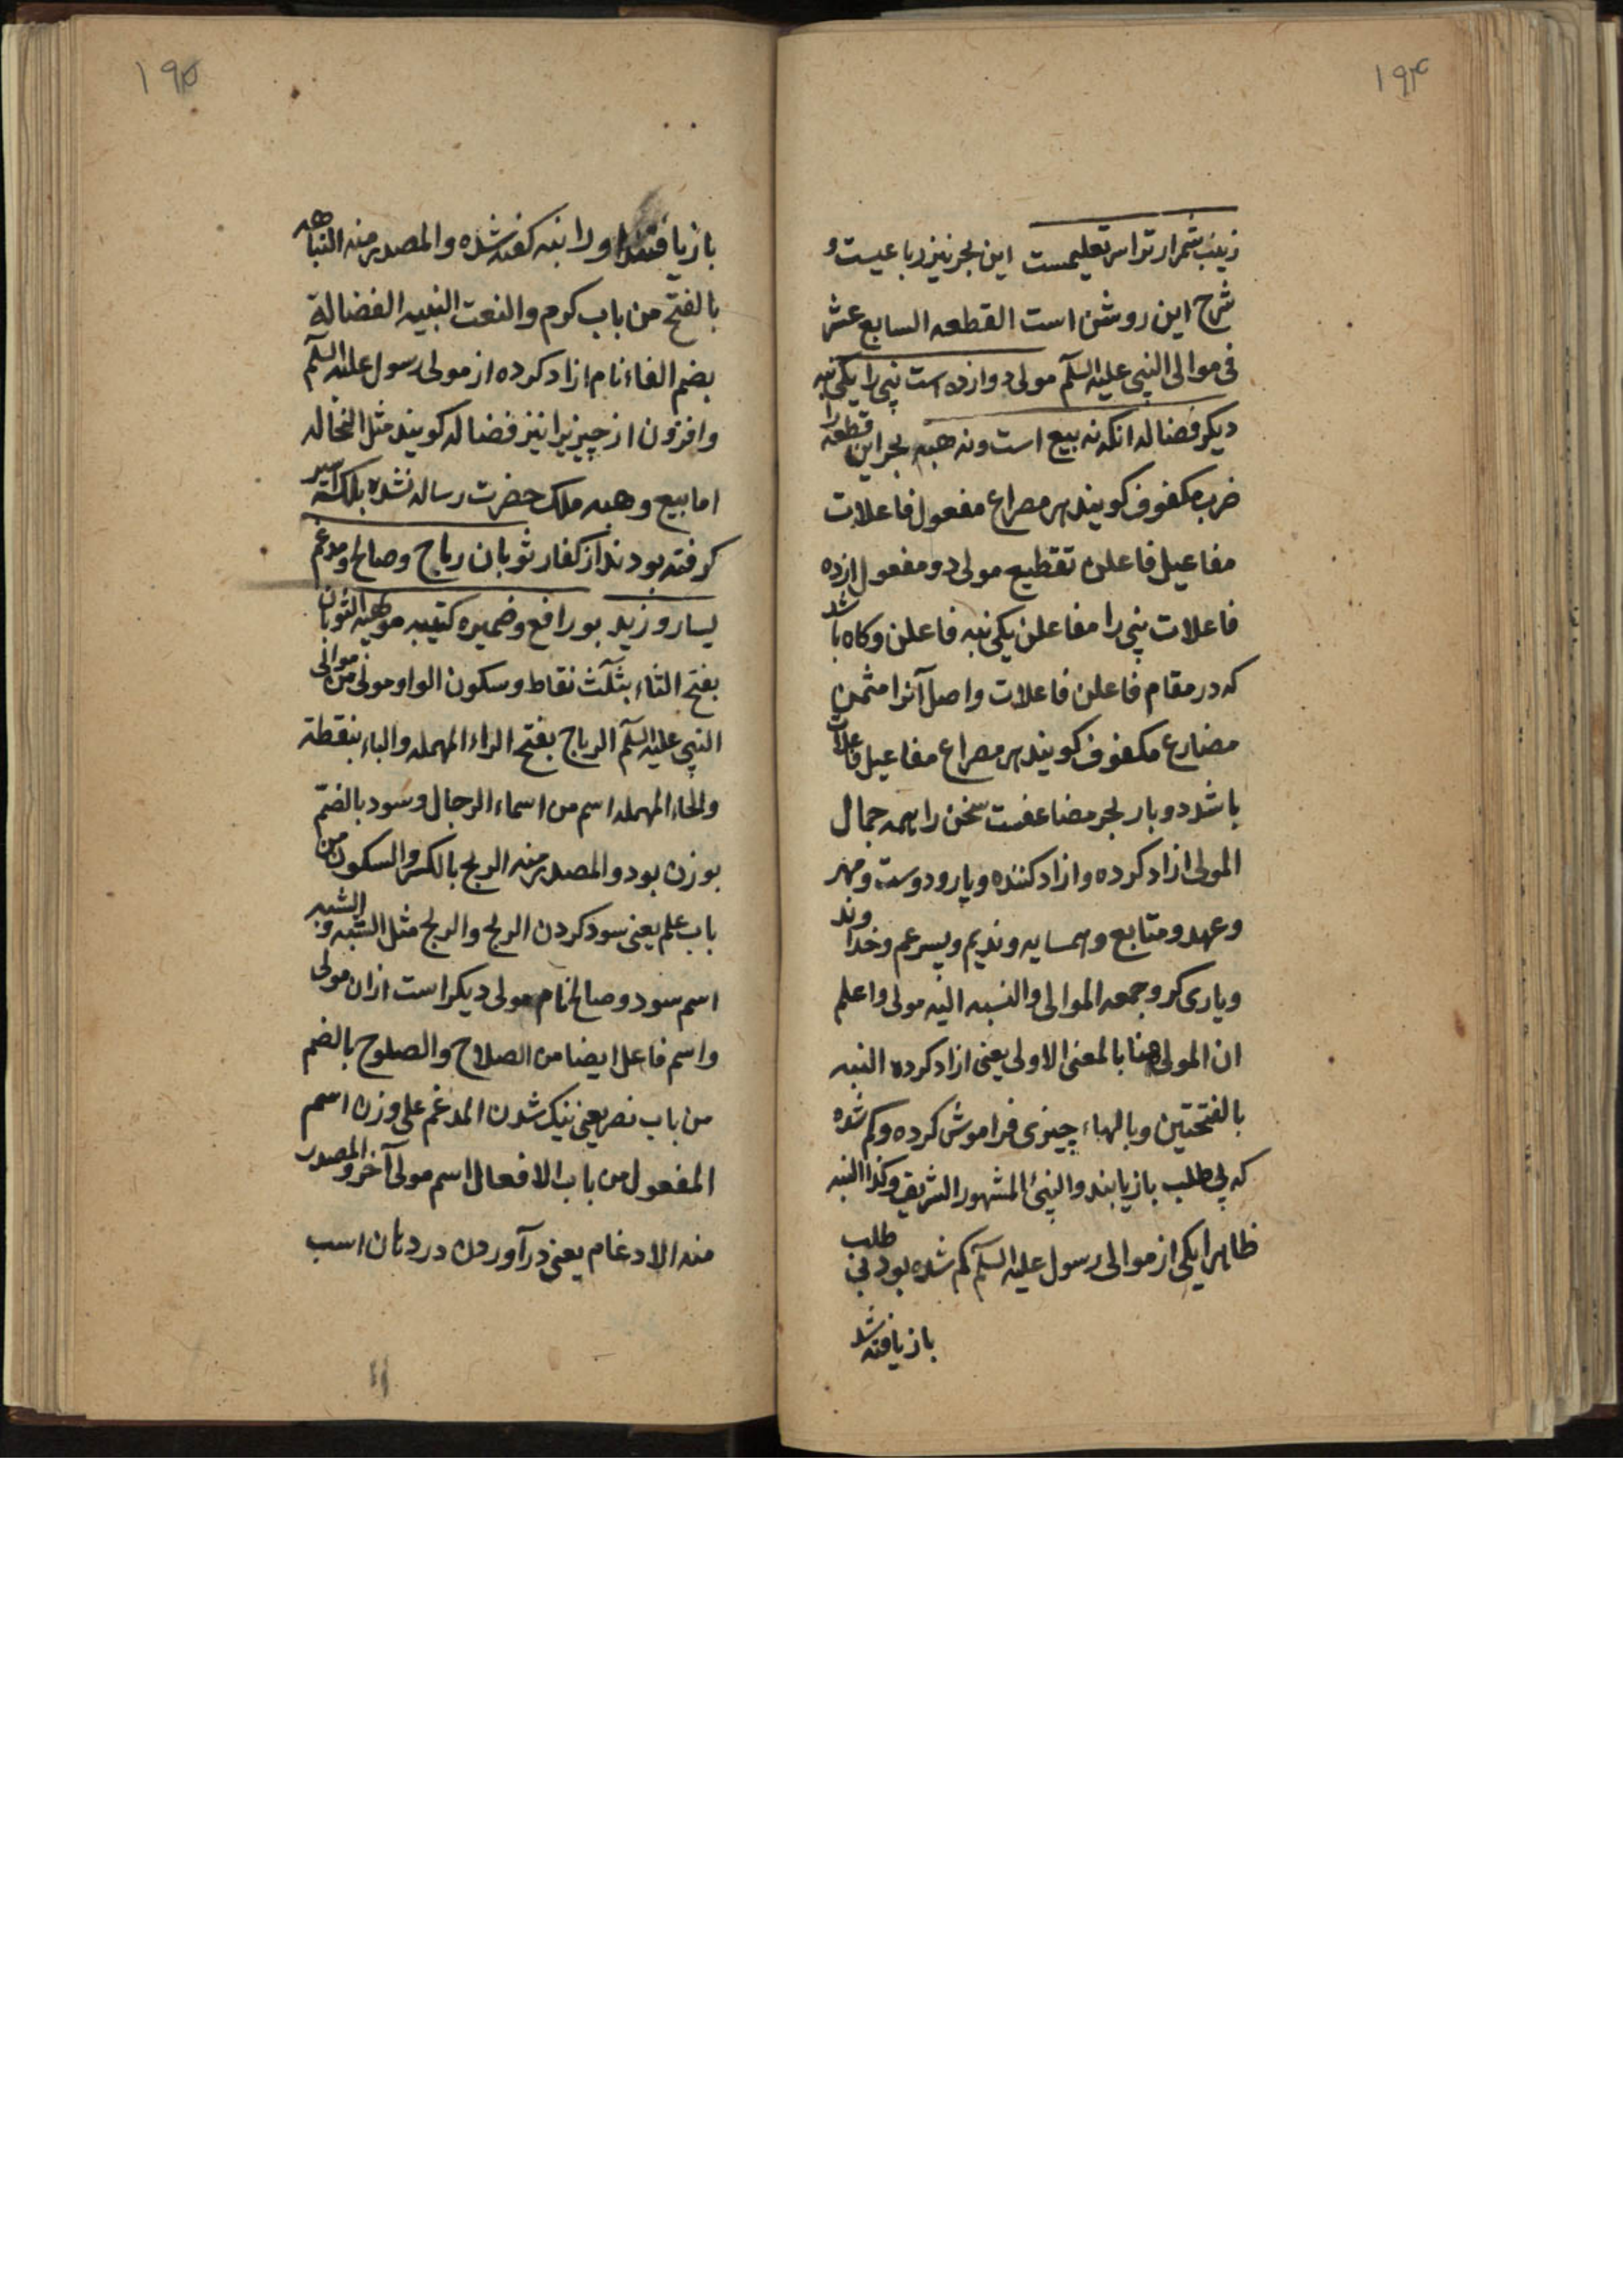 ۱۹۴
زینب شمر ار ترا سر تعلیمست این بحر نیز رباعیست و
شرح این روشن است القطعه السابع عشر
فی موالی النبی علیه السلم مولی دوازده است نبی را یکی نبه
دیکر فضاله انکه نه بیع است ونه هبه بحر این قطعه را
ضرب مکفوف کویند هر مصراع مفعول فاعلات
مفاعیل فاعلن تقطیع مولی دو مفعول ازده
فاعلات نبی را مفاعلن یکی نبه فاعلن وکاه باشد
که در مقام فاعلن فاعلات واصل آنرا مثمن
مضارع مکفوف کویند هر مصراع مفاعیل فاعلات
باشد دو بار بحر مضاعفست سخن را همه جمال
المولی ازاد کرده وازاد کننده ویار ودوست ومهر
وعهد ومتابع وهمسایه وندیم وپسر عم وخداوند
ویاری کر وجمعه الموالی والنسبه الیه مولی واعلم
ان المولی هنا بالمعنی الاولی یعنی ازاد کرده النبه
بالفتحتین وبالهاء چیزی فراموش کرده وکم شده
که بی طلب باز یابند والنبئ المشهور الشریف وکذا النبه
ظاهرا یکی از موالی رسول علیه السلم کم شده بود بی طلب
باز یافته شد
۱۹۵
باز یافتند اورا نبه کفته شده والمصدر منه النباهه
بالفتح من باب کرم والنعت النبیه الفضالة
بضم الفاء نام ازاد کرده از مولی رسول علیه السلم
وافزون از چیزیرا نیز فضاله کویند مثل النخاله
اما بیع وهبه ملک حضرت رساله نشده بلکه اسیر
کرفته بودند از کفار ثوبان رباح وصالح ومدغم
یسار وزید بورافع وضمیره کتیبه مویهبه الثوبان
بفتح الثاء بثلث نقاط وسکون الواو مولی من موالی
النبی علیه السلم الرباح بفتح الراء المهمله والباء بنقطة
والحاء المهمله اسم من اسماء الرجال وسود بالضم
بوزن بود والمصدر منه الربح بالکسر والسکون من
باب علم یعنی سود کردن الربح والربح مثل الشبه والشبه
اسم سود وصالح نام مولی دیکر است ازان مولی
واسم فاعل ایضا من الصلاح والصلوح بالضم
من باب نصر یعنی نیک شدن المدغم علی وزن اسم
المفعول من باب الافعال اسم مولی آخر والمصدر
منه الادغام یعنی درآوردن در دهان اسب